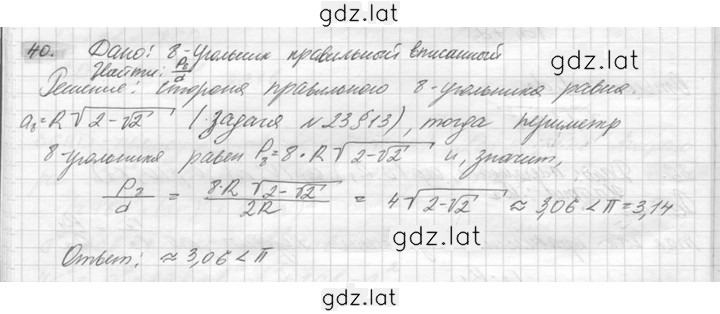 gdz.lat
40. Дано: 8-угольник правильный вписанный
Найти: P₈/d
Решение: Сторона правильного 8-угольника равна
a₈=R√(2-√2) (задача №23§13), тогда периметр
8-угольника равен P₈=8·R√(2-√2) и, значит,
P₂/d = 8·R√(2-√2)/2R = 4√(2-√2) ≈ 3,06 < π = 3,14
gdz.lat
Ответ: ≈ 3,06 < π
gdz.lat